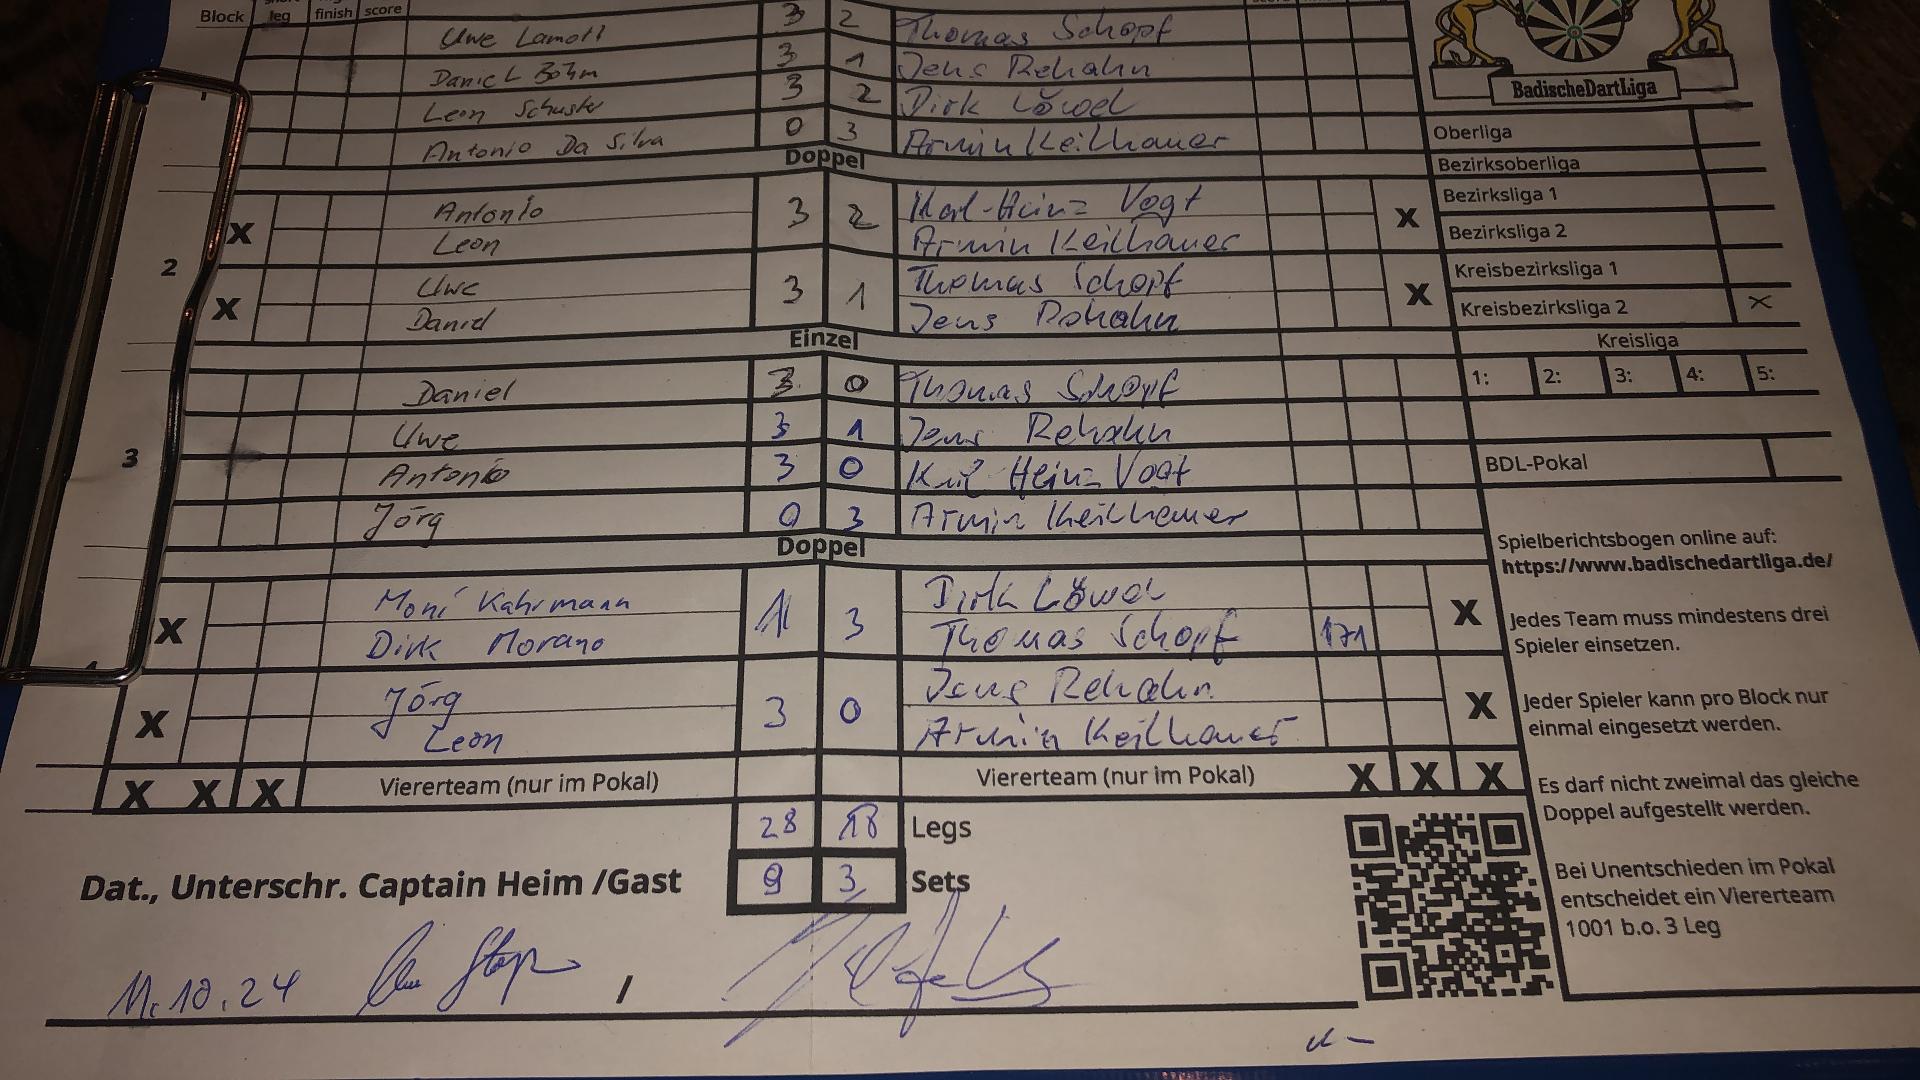 Block leg finish score
Uwe Lamott 3 2 Thomas Schopf
Daniel Böhm 3 1 Jens Rehahn
Leon Schuster 3 2 Dirk Löwel
Antonio Da Silva 0 3 Armin Keilhauer
Doppel
Antonio 3 2 Karl-Heinz Vogt
Leon Armin Keilhauer
X X
2
Uwe 3 1 Thomas Schopf
Daniel Jens Rehahn
X X
Einzel
Daniel 3 0 Thomas Schopf
Uwe 3 1 Jens Rehahn
3
Antonio 3 0 Karl Heinz Vogt
Jörg 0 3 Armin Keilhauer
Doppel
Moni Kahrmann 1 3 Dirk Löwel
Dirk Morano Thomas Schopf 171
X X
Jörg 3 0 Jens Rehahn
Leon Armin Keilhauer
X X
X X X Viererteam (nur im Pokal) Viererteam (nur im Pokal) X X X
28 18 Legs
9 3 Sets
Dat., Unterschr. Captain Heim /Gast
11.10.24 /
BadischeDartLiga
Oberliga
Bezirksoberliga
Bezirksliga 1
Bezirksliga 2
Kreisbezirksliga 1
Kreisbezirksliga 2 X
Kreisliga
1: 2: 3: 4: 5:
BDL-Pokal
Spielberichtsbogen online auf:
https://www.badischedartliga.de/
Jedes Team muss mindestens drei
Spieler einsetzen.
Jeder Spieler kann pro Block nur
einmal eingesetzt werden.
Es darf nicht zweimal das gleiche
Doppel aufgestellt werden.
Bei Unentschieden im Pokal
entscheidet ein Viererteam
1001 b.o. 3 Leg